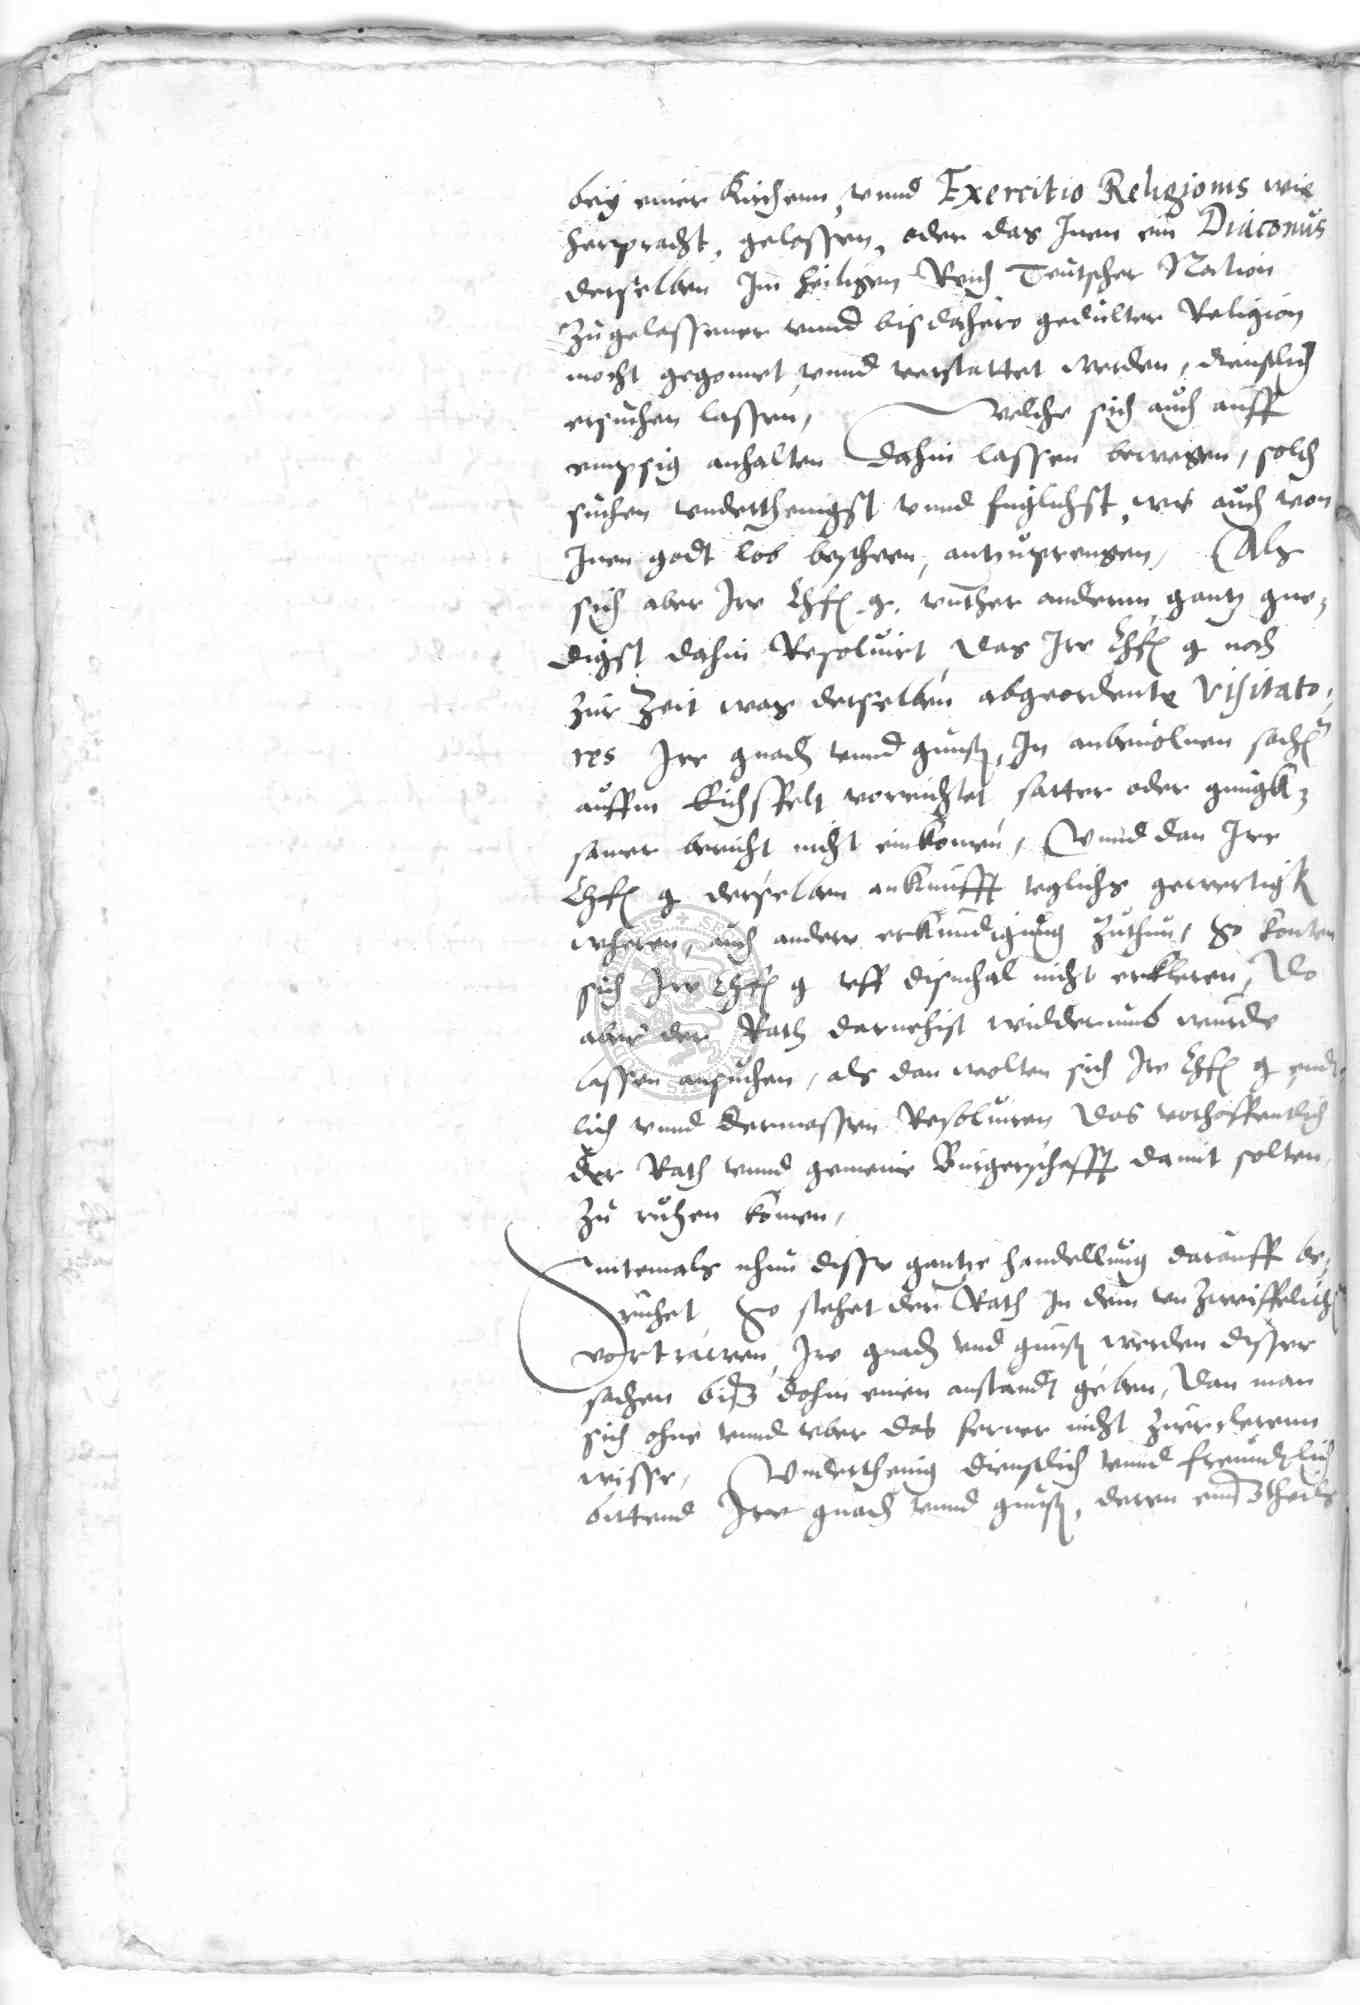 beÿ einer Kirchenn, vnnd Exercitio Religionis wie
herpracht, gelassen, oder das Inen ein Diaconus
derselben Im heiligen Reich Teutscher Nation
Zugelassener vnnd bisdahero gedulter Religion
mocht gegonnet, vnnd verstattet werden, dienstlich
ersuchen lassen, Welche sich auch auff
empsig anhalten dahin lassen bewegen, solch
suchen vnderthenigst vnnd fuglichst, wie auch von
Inen godt lob bescheen, antzuprengen, Als
sich aber Ire Chf g. vnther anderm gantz gne,
digst dahin Resoluirt, Das Ire Chf g noch
Zur Zeit was derselben abgeordente Visitato,
res Ire gnad vnnd gunst, In anbeuolnen sach
auffm Eichsfelt vorrichtet satter oder gnugk,
samer bericht nicht einkomen, Vnnd dan Ire
Chf g derselben ankunfft teglichs gewertigk
wheren, auch andere erkundigung Zuthun, So konten
sich Ire Chf g vff dismhal nicht erkleren, Do
aber der Rath darnehist widderumb wurde
lassen ansuchen, als dan wolten sich Ire Chf g endt,
lich vnnd dermassen Resoluiren Das vorhoffentlich
der Rath vnnd gemeine Burgerschafft damit solten
zu ruhen komen,
Sintemals nhun disse gantze handellung darauff be,
ruhet So stehet der Rath In dem vnzweiffelich
vortrawen, Ire gnad vnd gunst werden disser
sachen biß dohin einen anstandt geben, Dan man
sich ohne vnnd vber das ferner nicht zuercleren
wisse, Vnderthenig dienstlich vnnd freundtlich
bittend Ire gnad vnnd gunst, deren eins theils